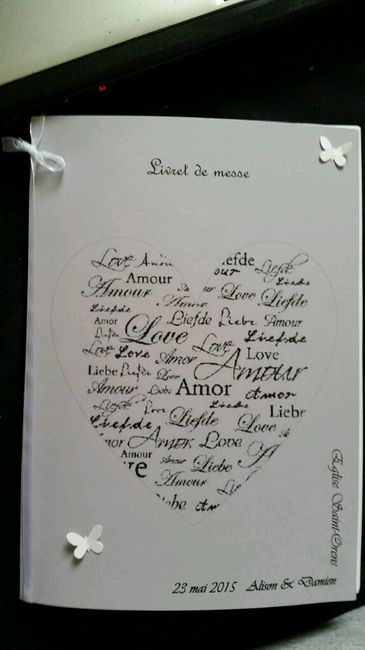 Livret de messe
Love Amour Liefde
our Liefde
Amour Liebe
Amour Amour Love Liefde
Liebe
Amor Liefde Liebe Amour
Love Liefde
Love Love Amor Love Love
Liebe Liefde Love Amour
Amour Liebe Amor Amor
Liefde Love Liebe Liebe
Liefde Liefde Love
Amor Love
Amour Amour Liebe
Amour
Eglise Saint-Orens
23 mai 2015 Alison & Damien